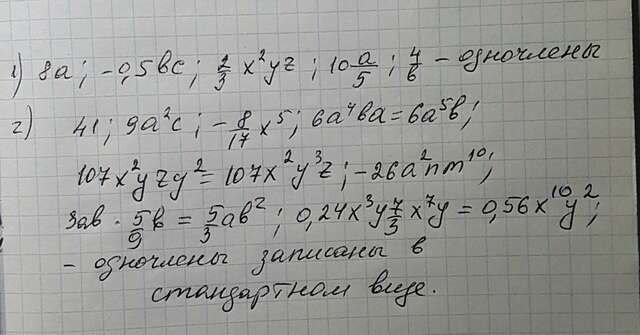 1) 8a; -0,5bc; 2/3 x²yz; 10 a/5; 4/6 - одночлены
2) 41; 9a²c; -8/17 x⁵; 6a⁴ba = 6a⁵b;
107x²yzy² = 107x²y³z; -26a²nm¹⁰;
3ab · 5/9 b = 5/3 ab²; 0,24x³y 7/3 x⁷y = 0,56x¹⁰y²;
- одночлены записаны в
стандартном виде.